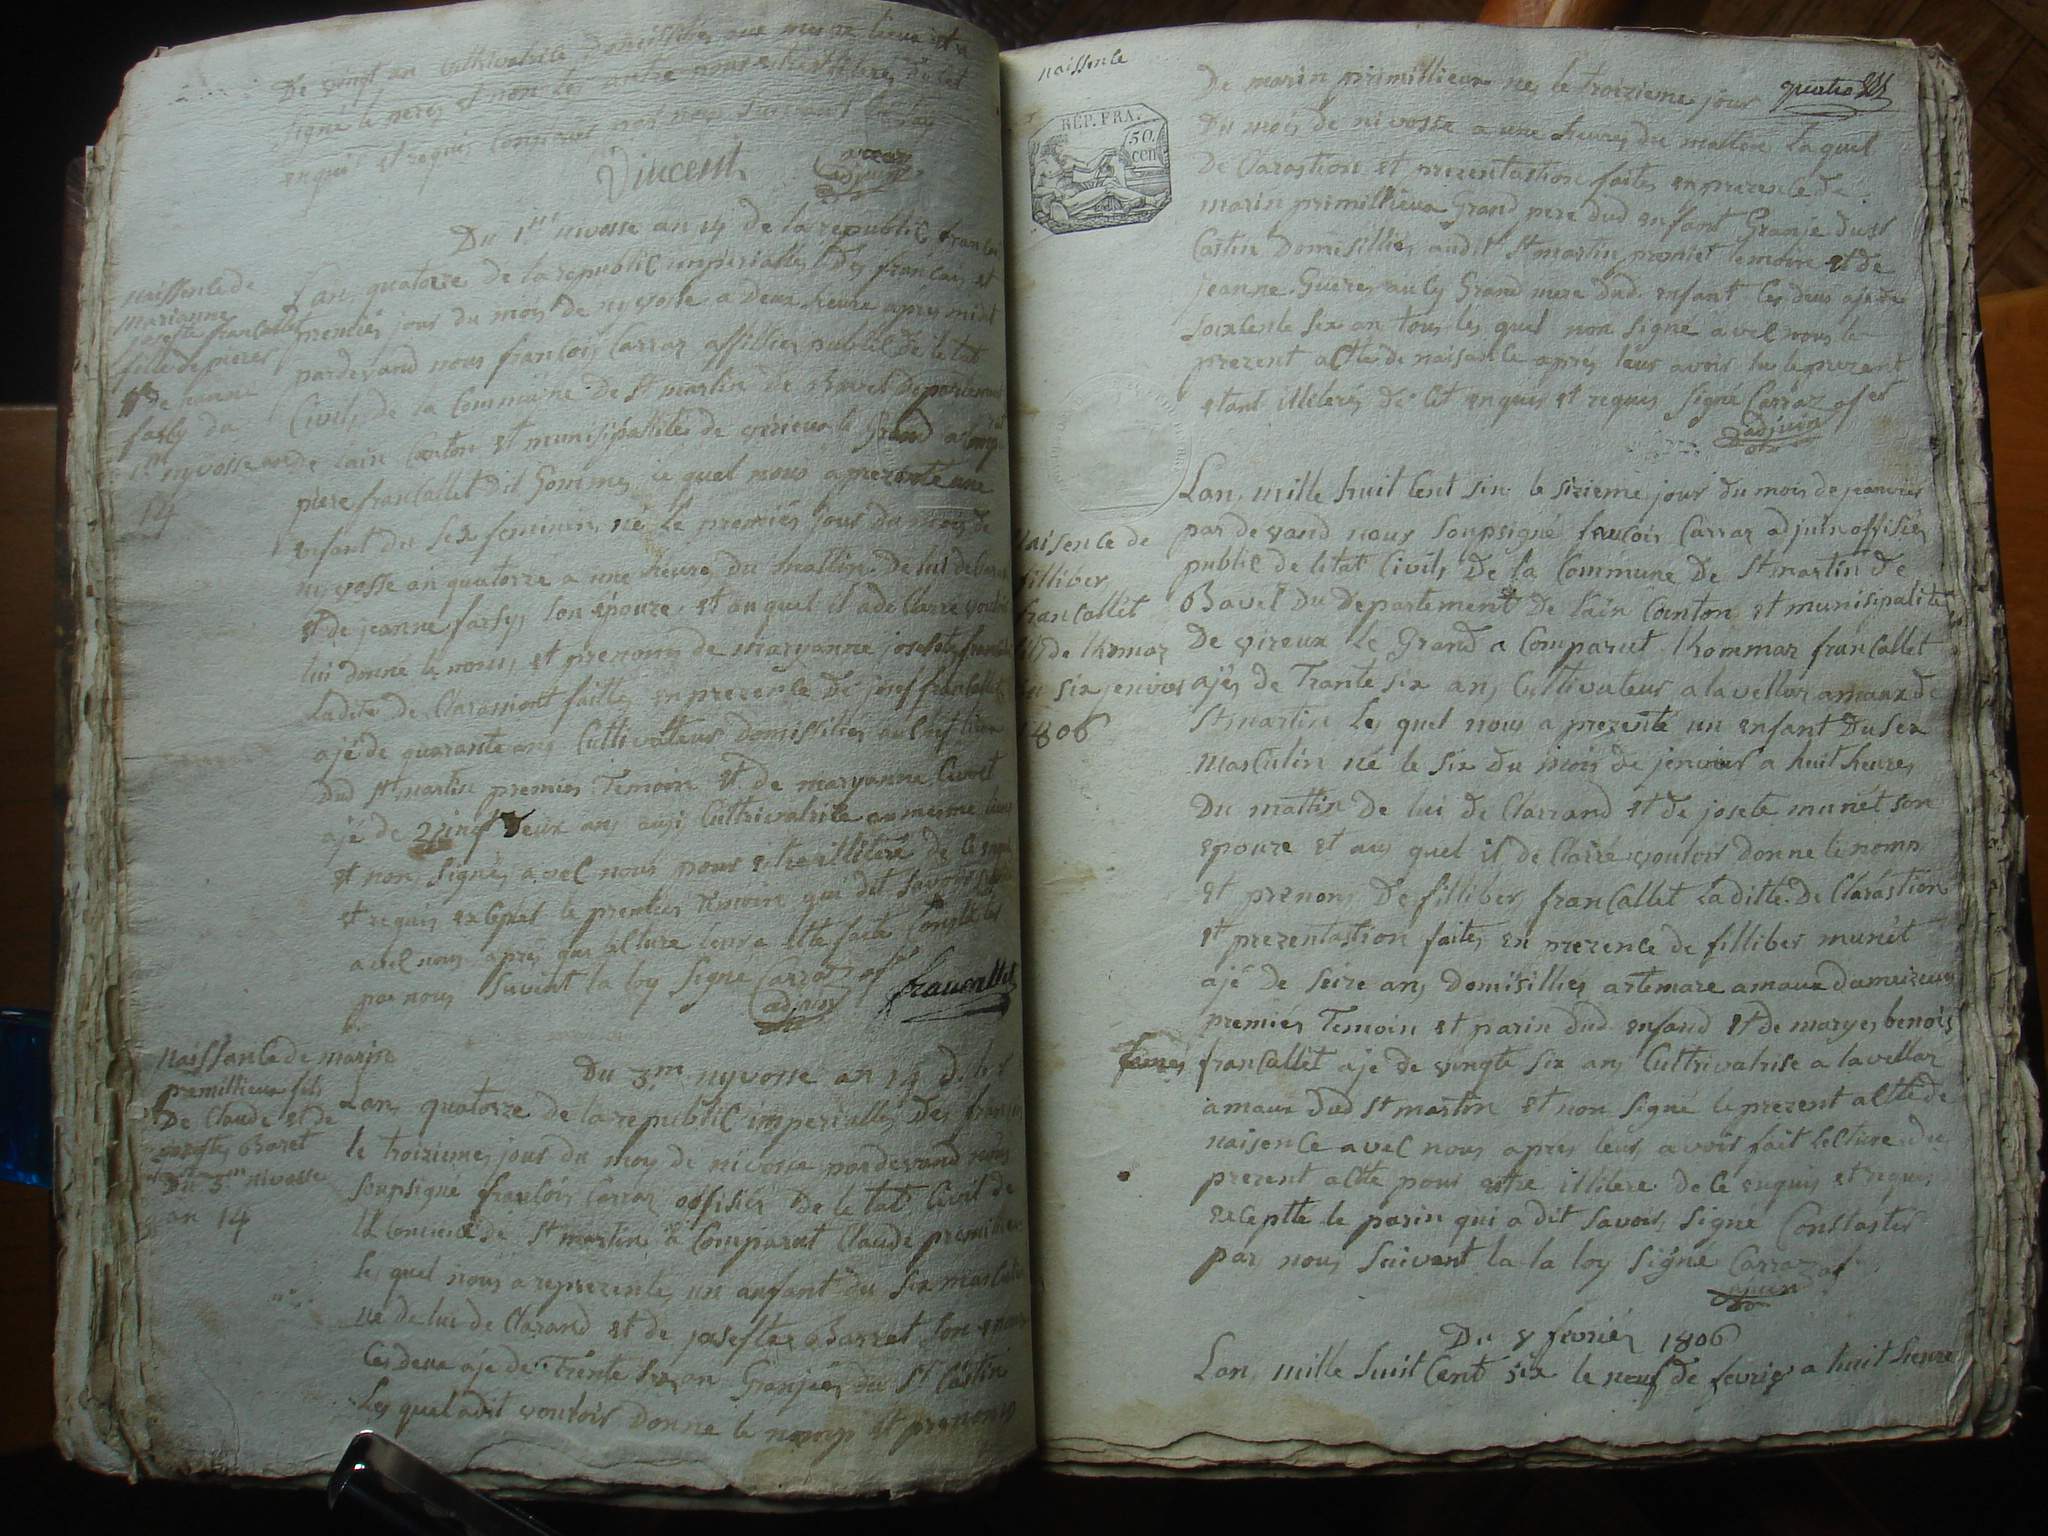 De vingt an Cultivatrice domissilies
signé le peres et non les autre pour estre illiteré
enquis et requis Constatés par nous suivant la loy
Vincent Carraz
adjuin
Du 1er nivosse an 14 de la republic francai
naissencle de
marianne
josepte francallet
fille de pierer
et de jeanne
farsy du
1er nyvosse an
14
L'an quatorze de la republic imperialle des francais et
premier jour du mois de nyvosse a deux heure apres midi
pardevand nous francois Carraz offissier public de l'etat
Civils de la Commune de St martin de Bavel Departement
de l'ain Canton et munisipallité de virieux le Grand a comparut
piere francallet dit Gomme, le quel nous a prezente une
enfant du sex feminin né le premier jour du mois de
nyvosse an quatorze a une heure du mattin de lui declarand
et de jeanne farsy son epouze et au quel il a declarre vouloir
lui donné le noms et prenoms de maryanne josephte francallet
Ladite declarassiont faitte en prezence de josef francallet
ajé de quarante an Cultivateur domissilies au Chef lieu
dud St martin premier Temoin et de maryanne Curvet
ajé de vingt deux ans aussi Cultrivatrice au meme lieux
et non signés avec nous pour estre illiteré de ce enquis
et requis excepter le premier Temoin qui dit savoir signé
avec nous apres que lecture leur a ette faite Constates
par nous Suivent la loy Signé Carraz ofer
adjuin francallet
Naissancle de marin
premillieux fils
De Claude et de
josepte Baret
Du 3m nivosse
an 14
Du 3m nyvosse an 14
Lan quatorze de la republic imperialle des francais
le troizieme jour du moy de nivosse pardevand nous
soupsigné francois Carraz offisier de le tat Civil de
la Commune de St martin a Comparut Claude premillieux
le quel nous a reprezente un anfant du sex masculin
né de lui declarand et de josephte Barret son epouze
Ces deux aje de Trente six an Granjer du St Castin
Les quel adit vouloir donne le nomp et prenoms
naissencle
quatre
RÉP. FRA.
50
cen
De marin primillieux né le troizieme jour
Du mois de nivosse a une heure du mattin Laquel
De Clarastion et prezentastion faites en prezence de
marin primillieux Grand pere dud enfant Granje du st
Castin Domisillie audit St martin premier temoin et de
jeanne Guere auly Grand mere dud. enfant Ces deux aje de
soixsente six an tous les quel non signé avec nous le
prezent actte de naisancle apres leur avoir lus le prezent
etant illiteré de Cet enquis et requis Signé Carraz ofer
adjuin
Lan mille huit Cent six le sizieme jour du mois de jeanvier
Naisencle de
filliber
francallet
fils de thomas
du six jenvier
1806
par devand nous Soupsigné francois Carraz adjuin offisier
public de letat Civils De la Commune De St martin de
Bavel Du Departement De l'ain Canton et munisipalite
De vireux Le Grand a Comparut Thommaz francallet
ajé de Trante six an Cultivateur a lavellar amaux de
St martin Le quel nous a prezenté un enfant Du sex
masculin né le six du mois de jenvier a huit heure
Du mattin de lui de Clarrand et de josete munét son
epouze et au quel il de Clarré vouloir donne le noms
et prenoms De filliber francallet Laditte de Clarastion
et prezentastion faites en prezence de filliber munét
ajé De seize an Domisillies artemare amaux dameizeux
premier Temoin et parin dud enfand et de marye benois
femes francallet aje de vingte six an Cultrivatrise a lavellar
amaux dud St martin et non signé le prezent actte de
naisencle avec nous apres leur avoir fait lecture du
prezent actte pour estre illitere de Ce enquis et requis
exceptte le parin qui a dit savoir signé Constaster
par nous Suivent la la loy Signé Carraz
adjuin of
Du 9 fevrier 1806
Lan mille huit Cent six le neuf de fevrier a huit heure